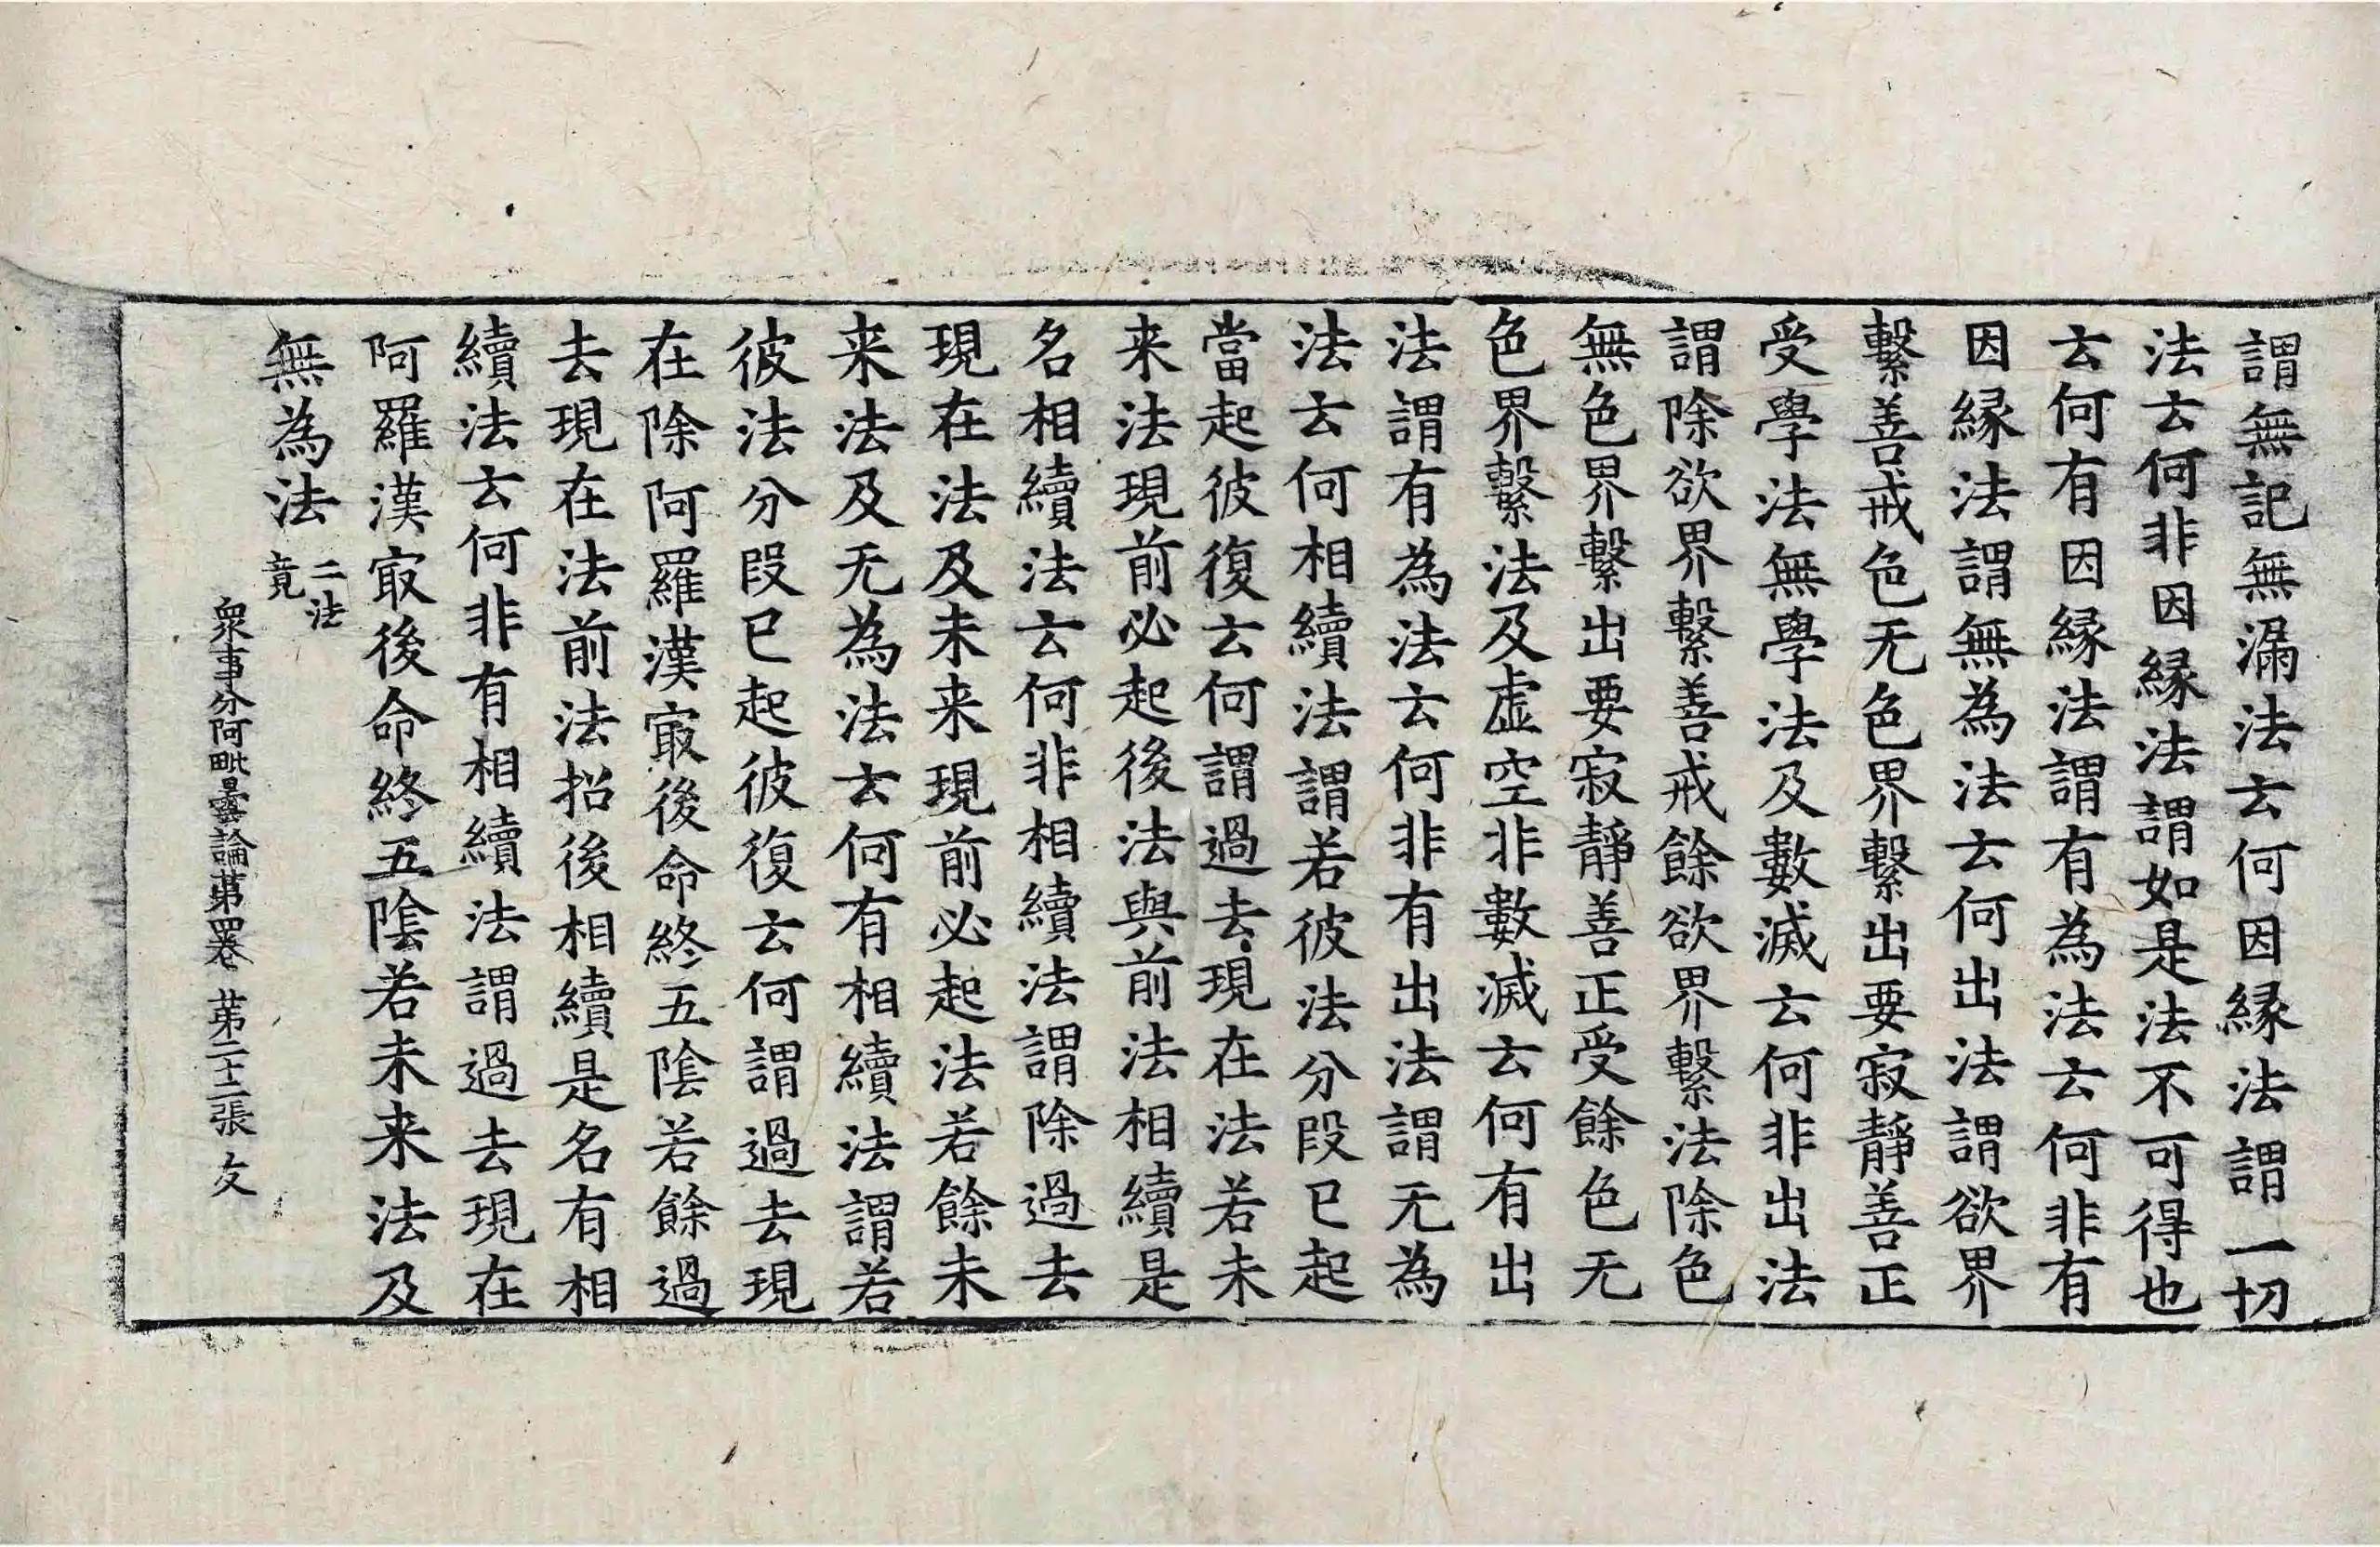 謂無記無漏法云何因縁法謂一切
法云何非因縁法謂如是法不可得也
云何有因縁法謂有為法云何非有
因縁法謂無為法云何出法謂欲界
繫善戒色无色界繫出要寂靜善正
受學法無學法及數滅云何非出法
謂除欲界繫善戒餘欲界繫法除色
無色界繫出要寂靜善正受餘色无
色界繫法及虛空非數滅云何有出
法謂有為法云何非有出法謂无為
法云何相續法謂若彼法分段已起
當起彼復云何謂過去現在法若未
来法現前必起後法與前法相續是
名相續法云何非相續法謂除過去
現在法及未来現前必起法若餘未
来法及无為法云何有相續法謂若
彼法分段已起彼復云何謂過去現
在除阿羅漢㝡後命終五陰若餘過
去現在法前法招後相續是名有相
續法云何非有相續法謂過去現在
阿羅漢㝡後命終五陰若未来法及
無為法二法竟
衆事分阿毗曇論第四卷 第二十二張 文